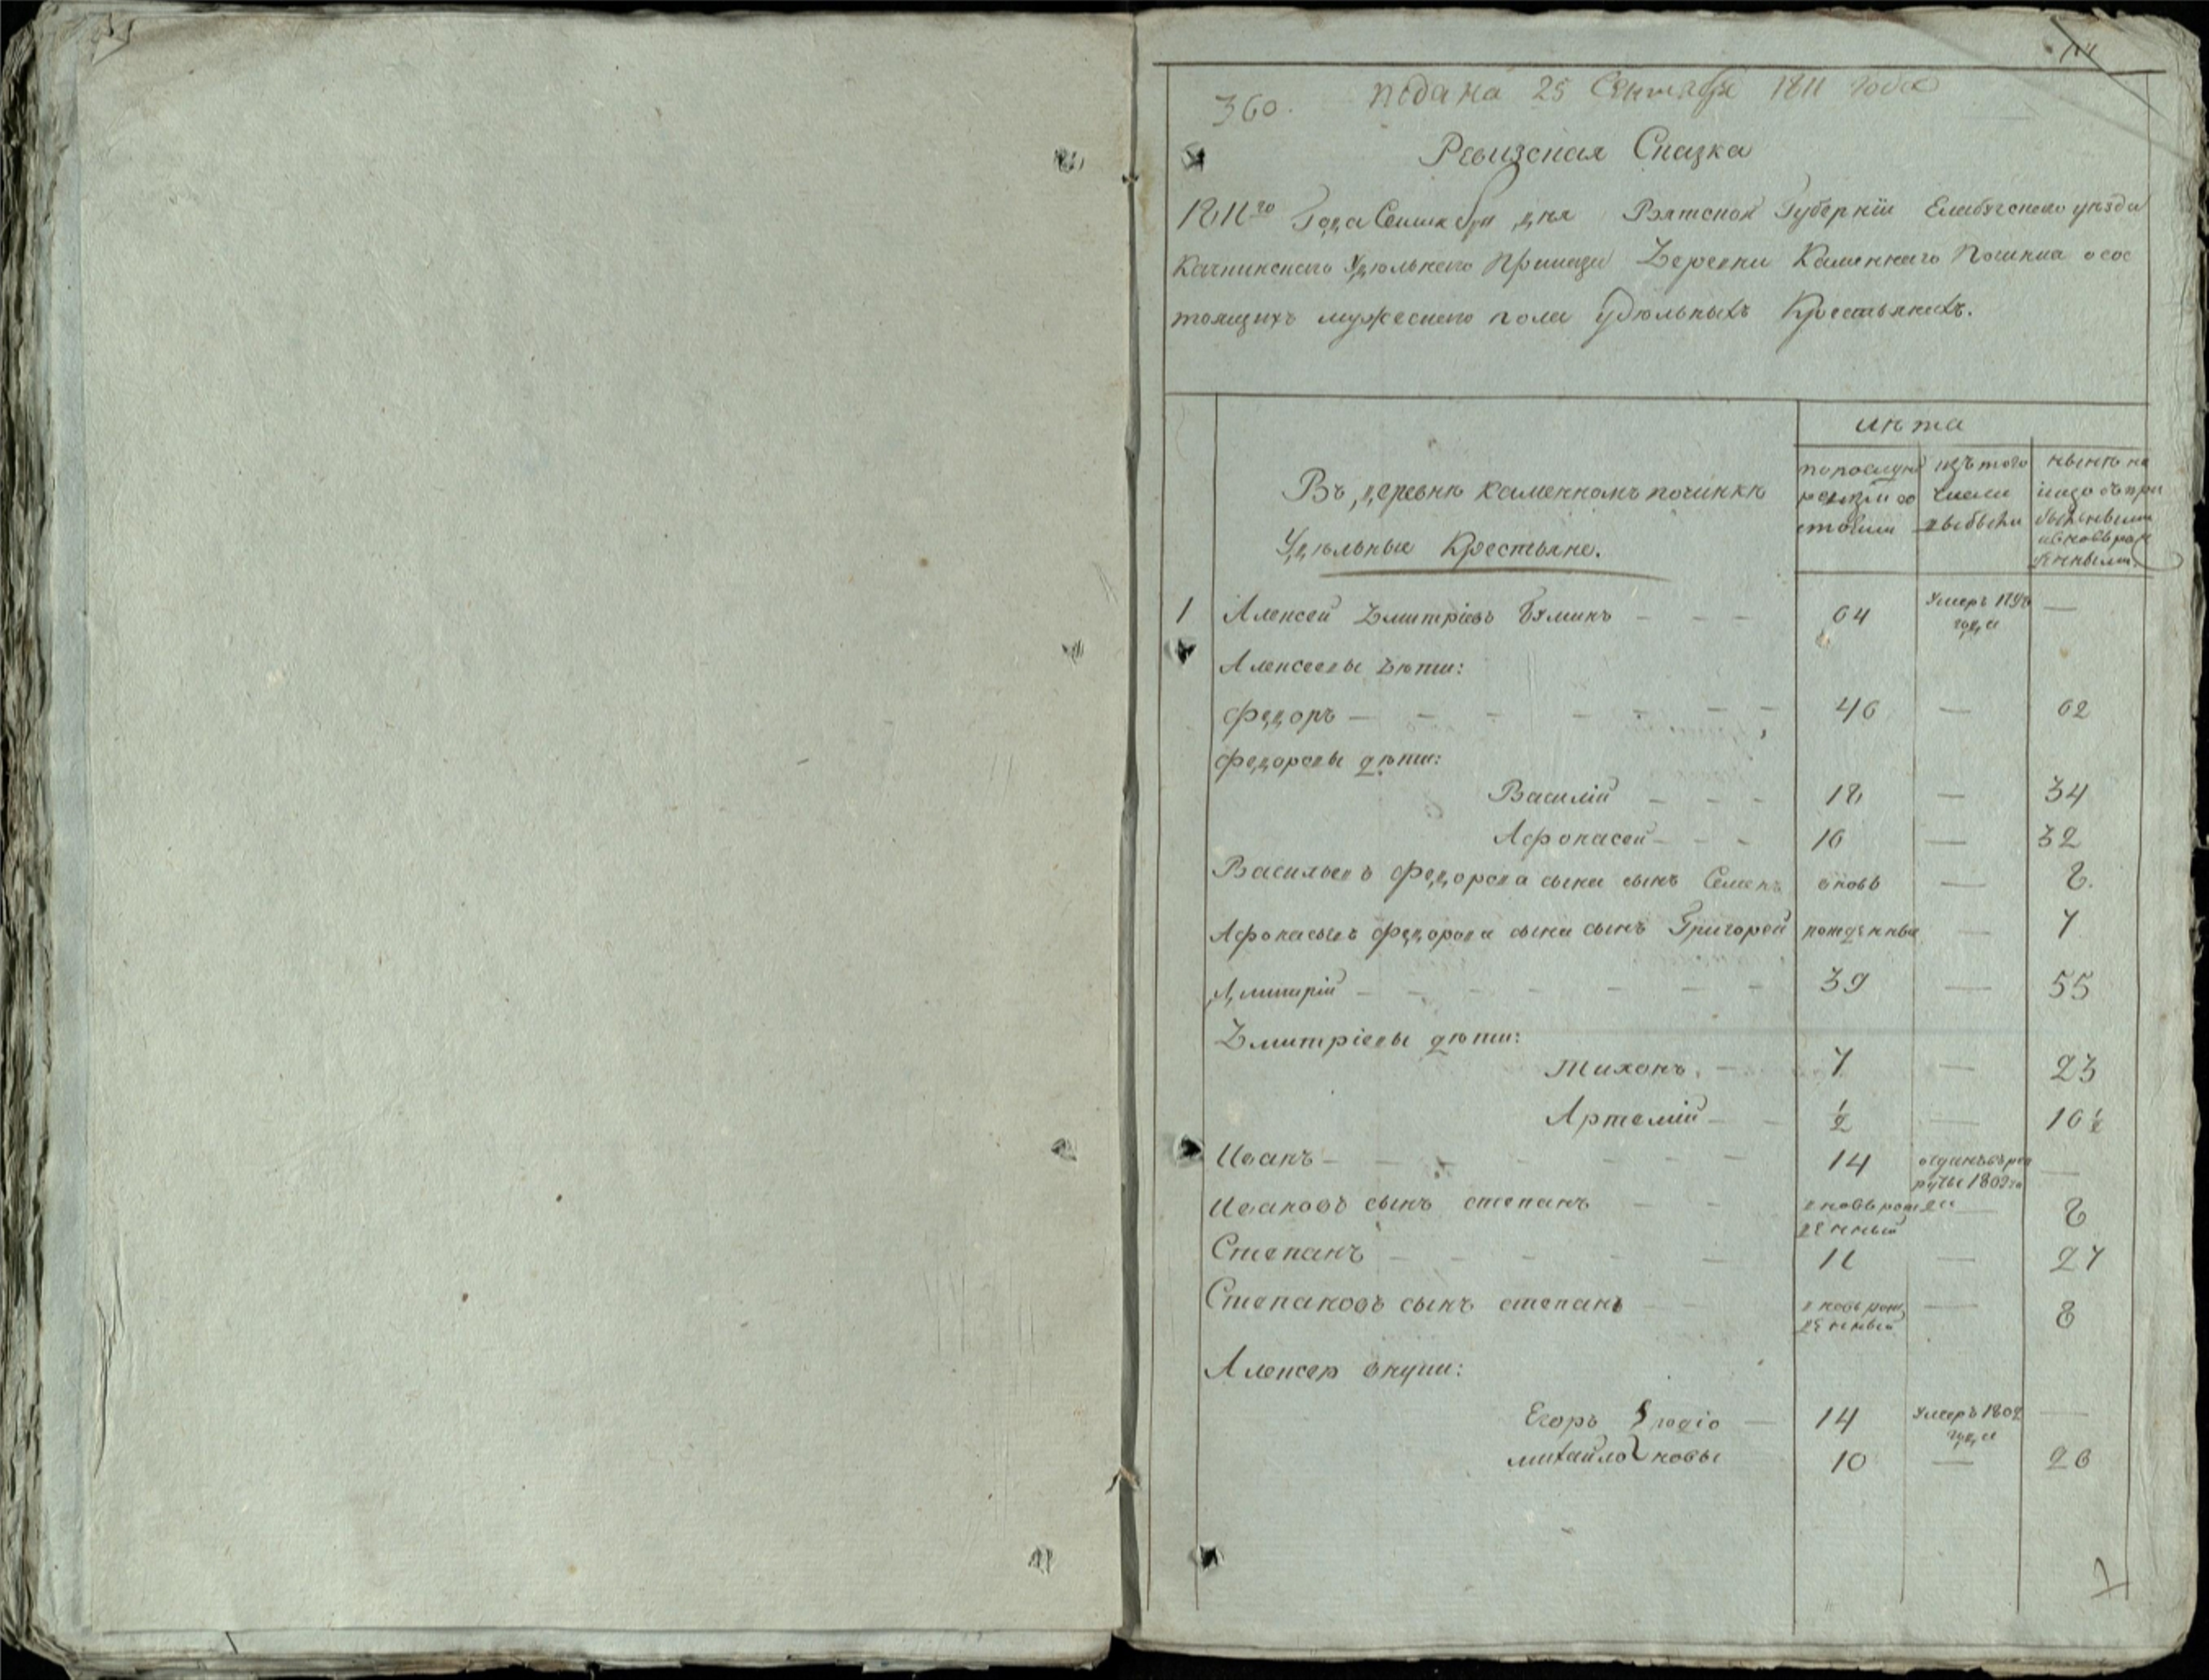 360. подана 25 Сентября 1811 года
Ревизская Сказка
1811го Года Сентября дня Вятской Губернїи Елабугского уѣзда
Качкинского Удѣльнаго Приказа Деревни Каменнаго Починка осос
тоящихъ мужеского пола удѣльныхъ Крестьянехъ.
лѣта
Въ деревнѣ каменномъ починкѣ
Удѣльные Крестьяне.
по последней ревизїи со стояли
изъ того числа выбыли
нынѣ на лицо съ при былыми и вновь рож денными
1 Алексей Дмитрїевъ — — — 64 Умеръ 1798 года —
Алексеевы дѣти:
Федоръ — — — — — — 46 — 62
Федоровы дѣти:
Василїй — — — 18 — 34
Афонасей — — — 16 — 32
Васильевъ Федорова сына сынъ Семенъ вновь — 8.
Афонасьевъ Федорова сына сынъ Григорей рожденные — 7
Дмитрїй — — — — — — 39 — 55
Дмитрїевы дѣти:
Тихонъ — 7 — 23
Артемїй — — 1/2 — 16 1/2
Иванъ — — — — — — 14 отданъ въ рек руты 1802го —
Ивановъ сынъ степанъ — — вновь рож денный — 8
Степанъ — — — — — 11 — 27
Степановъ сынъ степанъ — вновь рож денный — 8
Алексея внуки:
Егоръ — 14 Умеръ 1802 года —
михайло 10 — 26